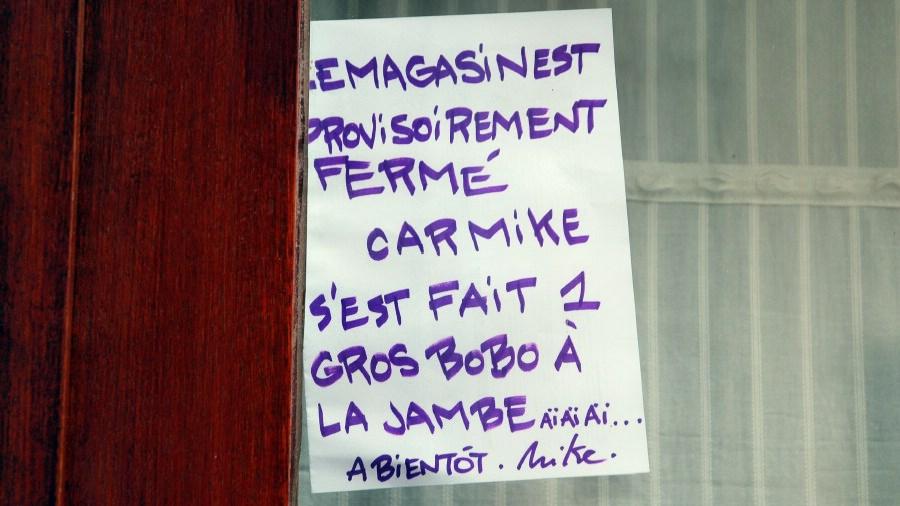 LE MAGASiN EST
PROViSOiREMENT
FERMÉ
CAR MiKE
S'EST FAiT 1
GROS BOBO À
LA JAMBE AÏAÏAÏ...
A BiENTÔT. Mike.